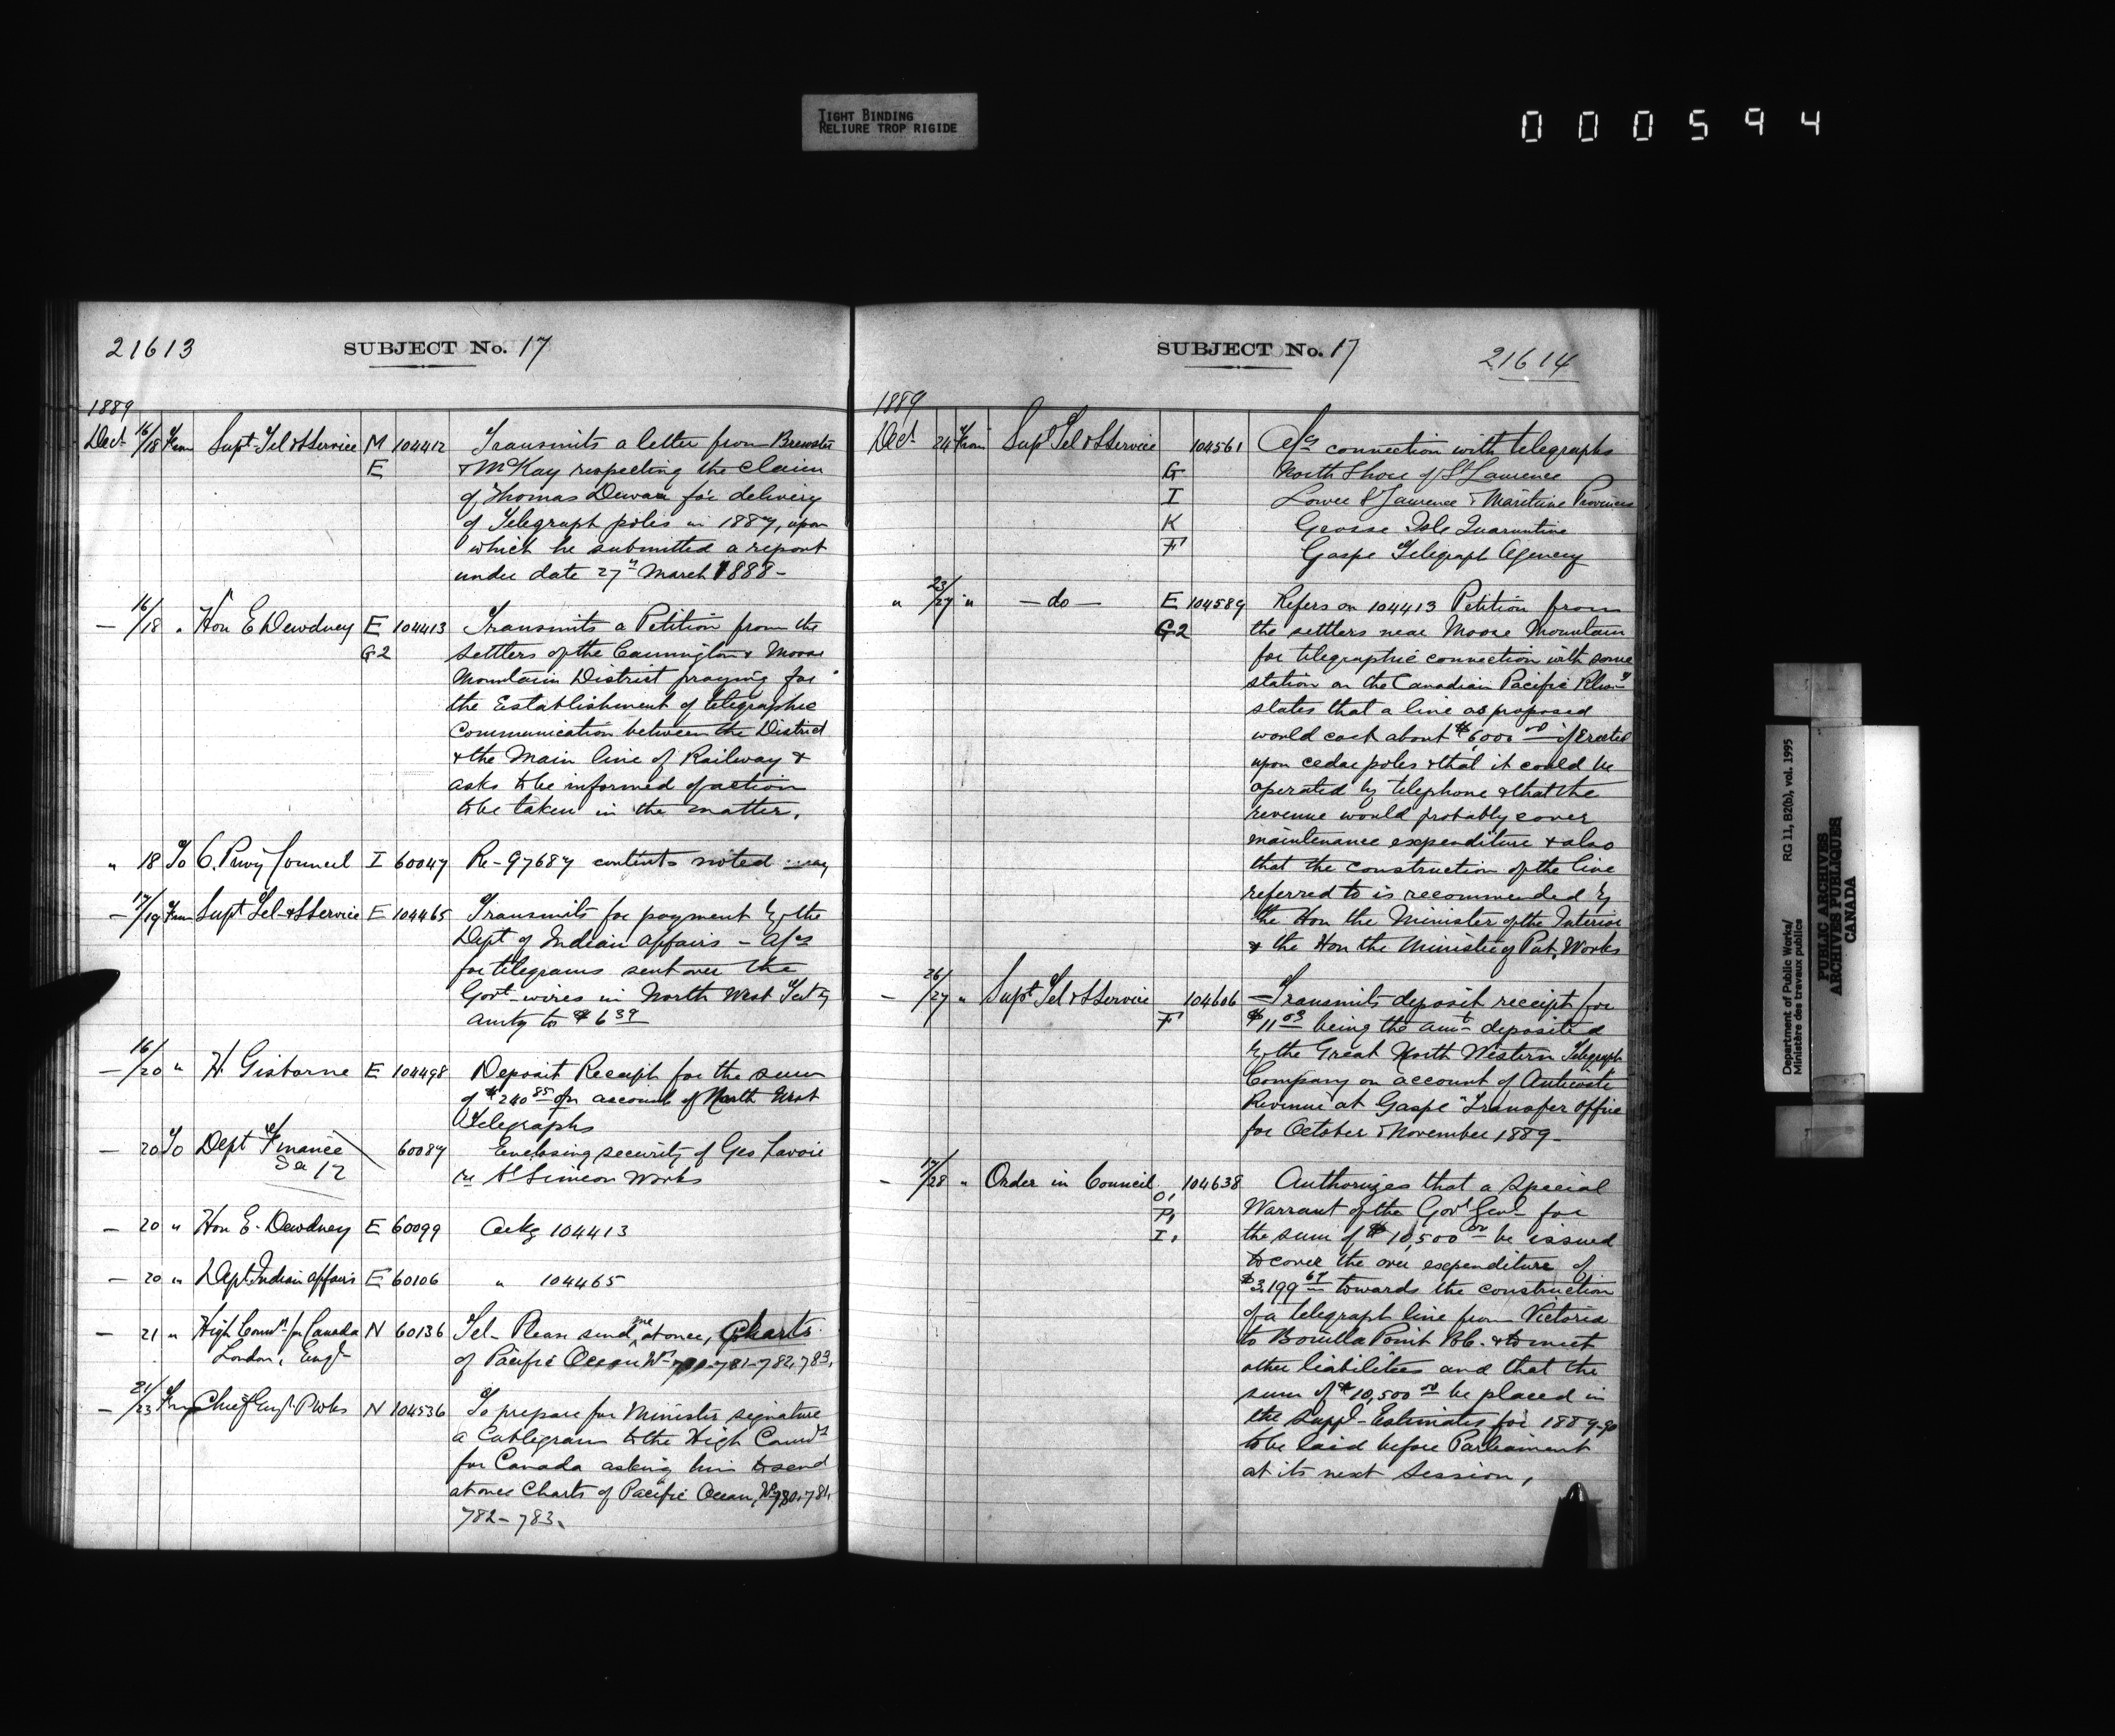 TIGHT BINDING
RELIURE TROP RIGIDE
000594
21613
SUBJECT No. 17
1889
Decr 16/18 From Supt Tel & SService M 104412 Transmits a letter from Brewster
E & McKay respecting the claim
of Thomas Dewar for delivery
of Telegraph poles in 1887, upon
which he submitted a report
under date 27th March 1888 -
— 16/18 " Hon E Dewdney E 104413 Transmits a Petition from the
G2 settlers of the Cannington & Moose
Mountain District praying for
the Establishment of telegraphic
Communication between the District
& the Main line of Railway &
asks to be informed of action
to be taken in the matter.
" 18 To C. Privy Council I 60047 Re - 97687 contents noted
— 17/19 From Supt Tel & SService E 104465 Transmits for payment by the
Dept of Indian Affairs - a/cs
for telegrams sent over the
Govt wires in North West Tery
amtg to $6 39
— 16/20 " H. Gisborne E 104498 Deposit Receipt for the sum
of $240 85 on account of North West
Telegraphs
— 20 To Dept Finance 60087 Enclosing security of Geo Lavoie
See 12 re St Simeon Works
— 20 " Hon E. Dewdney E 60099 Ackg 104413
— 20 " Dept Indian Affairs E 60106 " 104465
— 21 " High Comr for Canada N 60136 Tel - Please send me at once, Charts
London, Engd of Pacific Ocean Nos 780-781-782, 783,
— 21/23 From Chief Engr P Wks N 104536 To prepare for Minister signature
a Cablegram to the High Comr
for Canada asking him to send
at once Charts of Pacific Ocean, Nos 780, 781,
782 - 783.
SUBJECT No. 17
21614
1889
Decr 24 From Supt Tel & SService 104561 A/cs connection with telegraphs
G North Shore of St Lawrence
I Lower St Lawrence & Maritime Provinces
K Grosse Isle Quarantine
F Gaspe Telegraph Agency
" 23/27 " — do — E 104589 Refers on 104413 Petition from
G2 the settlers near Moose Mountain
for telegraphic connection with some
station on the Canadian Pacific Rlway
states that a line as proposed
would cost about $6000 00 if Erected
upon cedar poles & that it could be
operated by telephone & that the
revenue would probably cover
maintenance expenditure & also
that the construction of the line
referred to is recommended by
the Hon the Minister of the Interior
& the Hon the Minister of Pub. Works
— 26/27 " Supt Tel & SService 104606 Transmits deposit receipt for
F $11 03 being the amt deposited
by the Great North Western Telegraph
Company on account of Anticosti
Revenue at Gaspe Transfer Office
for October & November 1889 -
- 17/28 " Order in Council 104638 Authorizes that a Special
O, Warrant of the Govr Genl for
P,
I, the sum of $10,500 00 be issued
to cover the over expenditure of
$3.199 67 towards the construction
of a telegraph line from Victoria
to Bonilla Point B.C. & to meet
other liabilities and that the
sum of $10,500 00 be placed in
the Suppl - Estimates for 1889-90
to be laid before Parliament
at its next Session,
Department of Public Works/
Ministère des travaux publics
RG 11, B2(b), vol. 1995
PUBLIC ARCHIVES
ARCHIVES PUBLIQUES
CANADA